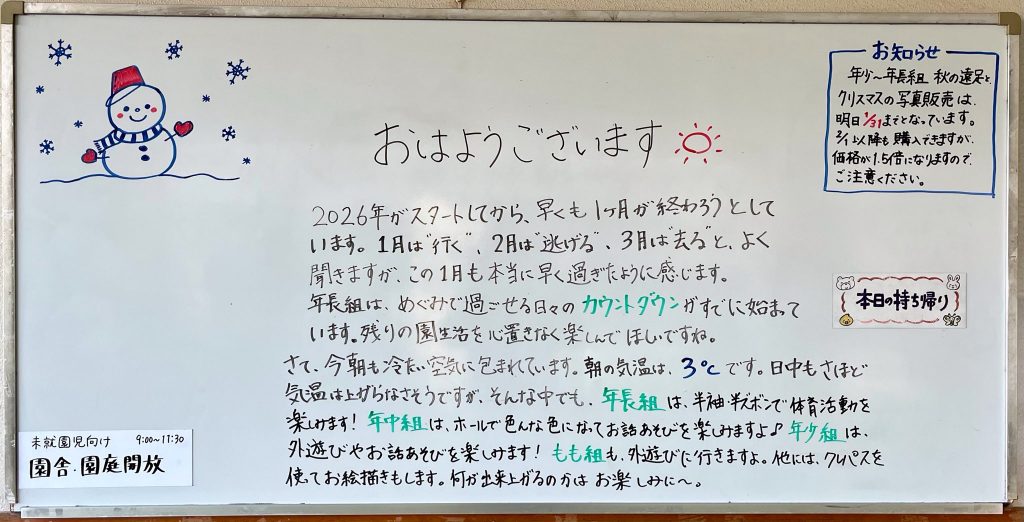 おはようございます
2026年がスタートしてから、早くも1ヶ月が終わろうとして
います。1月は"行く"、2月は"逃げる"、3月は"去る"と、よく
聞きますが、この1月も本当に早く過ぎたように感じます。
年長組は、めぐみで過ごせる日々のカウントダウンがすでに始まって
います。残りの園生活を心置きなく楽しんでほしいですね。
さて、今朝も冷たい空気に包まれています。朝の気温は、3℃です。日中もさほど
気温は上がらなさそうですが、そんな中でも、年長組は、半袖・半ズボンで体育活動を
楽しみます！年中組は、ホールで色んな色になってお話あそびを楽しみますよ♪年少組は、
外遊びやお話あそびを楽しみます！もも組も、外遊びに行きますよ。他には、クレパスを
使ってお絵描きもします。何が出来上がるのかはお楽しみに〜。
お知らせ
年少〜年長組 秋の遠足と
クリスマスの写真販売は、
明日1/31までとなっています。
2/1以降も購入できますが、
価格が1.5倍になりますので、
ご注意ください。
本日の持ち帰り
未就園児向け 9:00~11:30
園舎・園庭開放